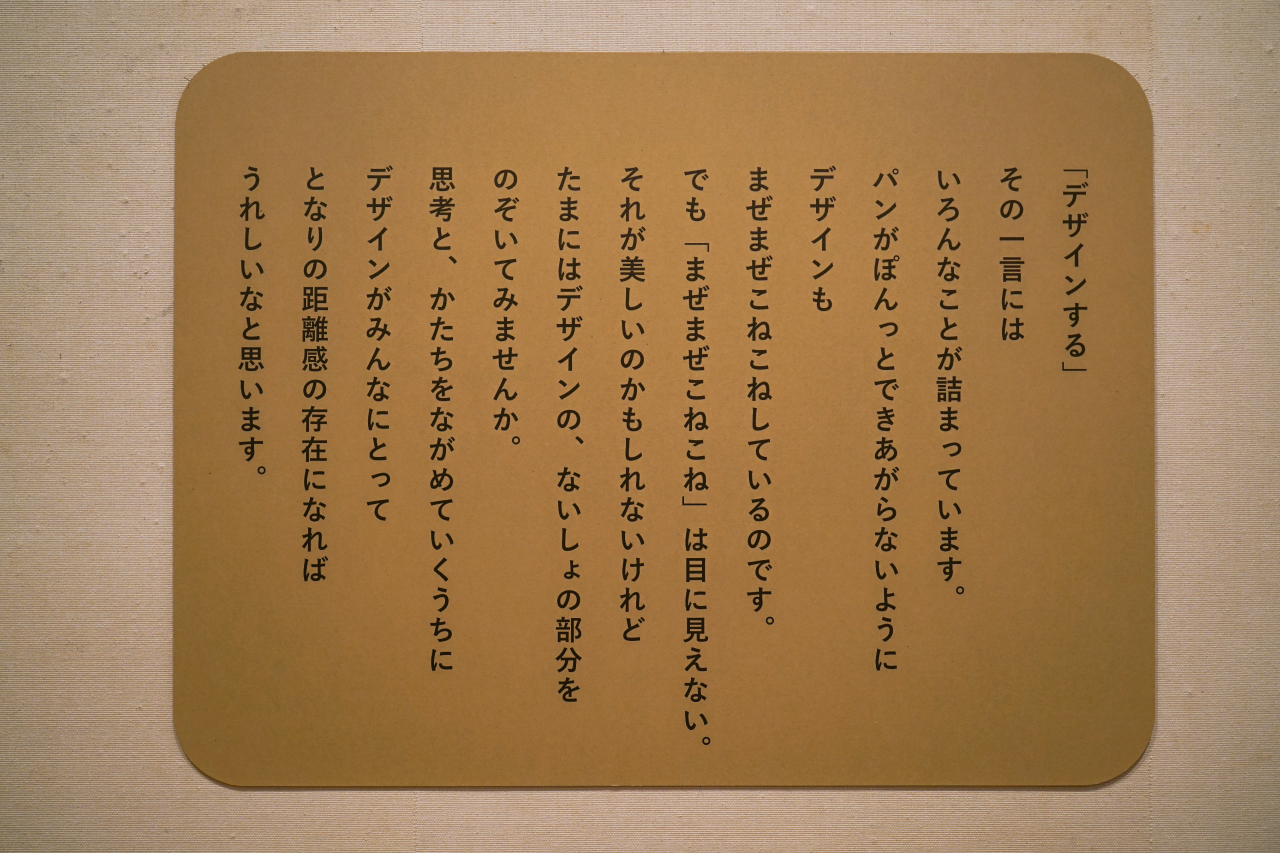 「デザインする」
その一言には
いろんなことが詰まっています。
パンがぽんっとできあがらないように
デザインも
まぜまぜこねこねしているのです。
でも「まぜまぜこねこね」は目に見えない。
それが美しいのかもしれないけれど
たまにはデザインの、ないしょの部分を
のぞいてみませんか。
思考と、かたちをながめていくうちに
デザインがみんなにとって
となりの距離感の存在になれば
うれしいなと思います。